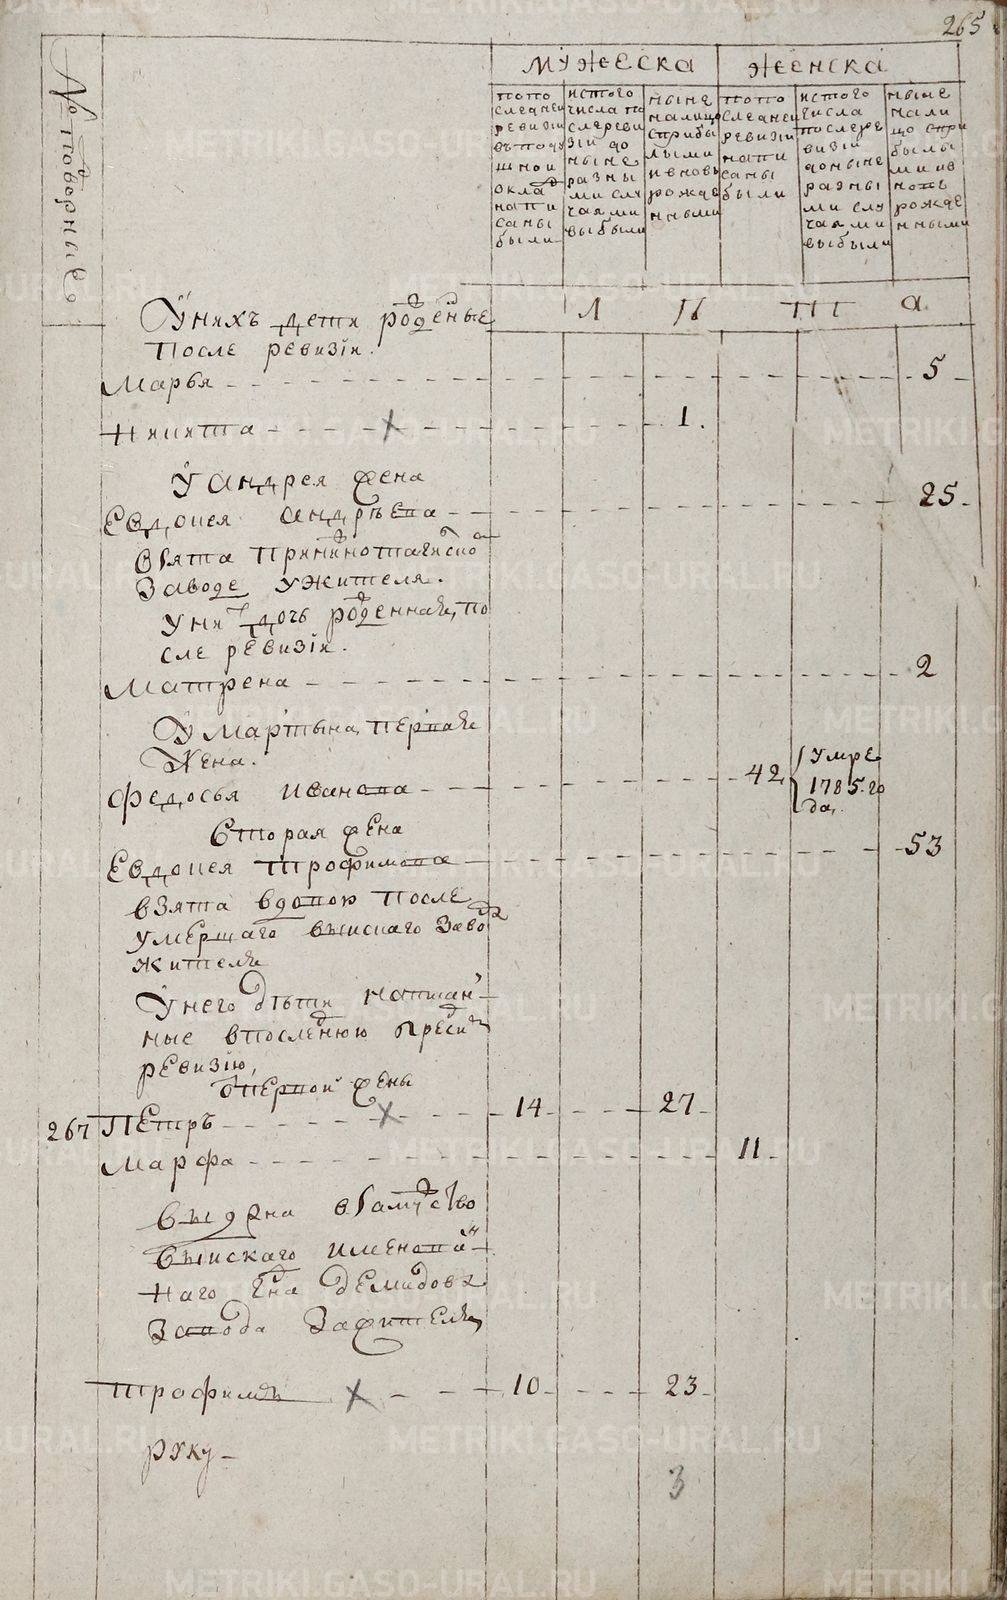 265
№ подворные
мужеска
женска
попо
следнеи
ревизіи
въподу
шнои
окла
напи
саны
были
истого
числа по
слереви
зіи до
ныне
разны
ми слу
чаями
выбыли
ныне
налицо
сприбы
лыми
ивновь
рожде
нными
попо
следнеи
ревизіи
напи
саны
были
истого
числа
послере
визіи
доныне
разны
ми слу
чаями
выбыли
ныне
нали
цо спри
былы
ми ив
новь
рожде
нными
Л
Ц
III
а
Унихъ дети роденые
После ревизіи.
Марья 5
Никита 1.
У андрея жена
Евдокея андрѣева 25
взята
Заводе ужителя.
уни дочь роденная, по
сле ревизіи.
Матрена 2
У мартына, первая
Жена.
Федосья иванова 42
умре
1785. го
да,
вторая жена
Евдокея трофимова 53
взята вдовою после
умершаго выискаго заво
жителя
У него дѣти написан
ные впоследнюю пред
ревизію,
отпервои жены
267 Петръ 14 27
Марфа 11
выдана взамуство
выискаго именова
наго ена демидова
завода зажителя
трофимъ 10 23
руку
3
METRIKI.GASO-URAL.RU